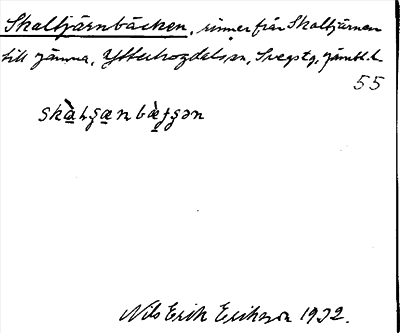 Skaltjärnbäcken, rinner från Skaltjärnen
till Jämna, Ytterhogdals sn, Svegs tg, Jämtl. l.
55
Nils Erik Erikson 1932.